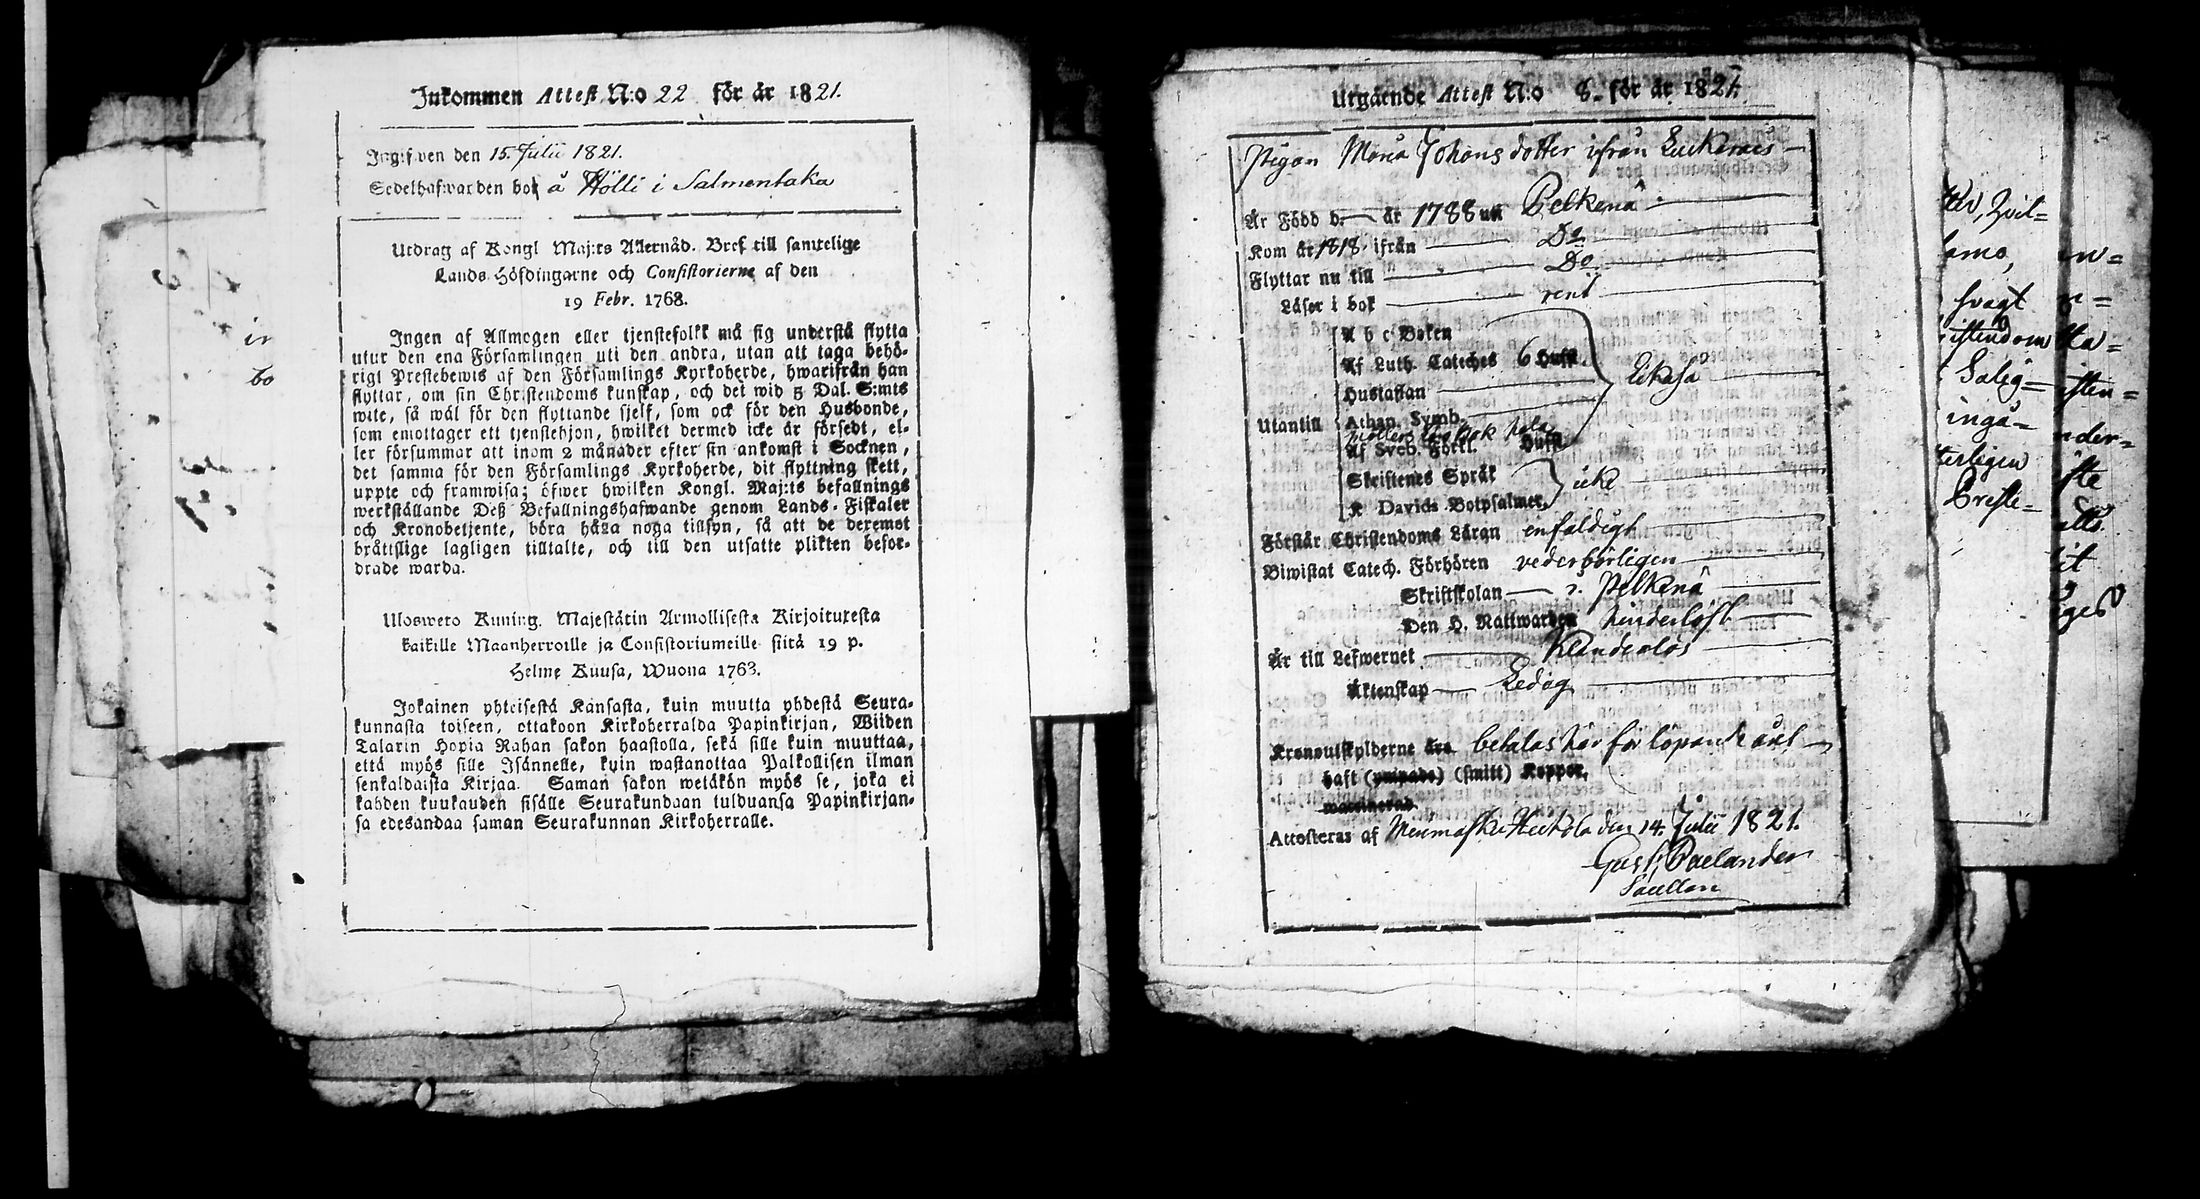 Inkommen Attest N:o 22 för år 1821.
Ingifven den 15. Julii 1821.
Sedelhafwarden bor å Hölli i Salmentaka
Utdrag af Kongl Maj:ts Allernåd. Bref till samtelige
Lands Höfdingarne och Consistorierne af den
19 Febr. 1768.
Ingen af Allmogen eller tjenstefolkk må sig understå flytta
utur den ena Församlingen uti den andra, utan att taga behö-
rigt Prestebewis af den Församlings Kyrkoherde, hwarifrån han
flyttar, om sin Christendoms kunskap, och det wid 5 Dal. S:mts
wite, så wäl för den flyttande sjelf, som ock för den Husbonde,
som emottager ett tjenstehjon, hwilket dermed icke är försedt, el-
ler försummar att inom 2 månader efter sin ankomst i Socknen,
det samma för den Församlings Kyrkoherde, dit flyttning skett,
uppte och framwisa; öfwer hwilken Kongl. Maj:ts befallnings
werkställande Deß Befallningshafwande genom Lands-Fiskaler
och Kronobetjente, böra hålla noga tillsyn, så att de deremot
bråttslige lagligen tilltalte, och till den utsatte plikten befor-
drade warda.
Uloswero Kuning. Majestätin Armollisesta Kirjoituresta
kaikille Maanherroille ja Consistoriumeille siitä 19 p.
Helme Kuusa, Wuona 1763.
Jokainen yhteisestä Kansasta, kuin muutta yhdestä Seura-
kunnasta toiseen, ottakoon Kirkoherralda Papinkirjan, Wiiden
Talarin Hopia Rahan sakon haastolla, sekä sille kuin muuttaa,
että myös sille Isännelle, kuin wastanottaa Palkollisen ilman
senkaldaista Kirjaa. Saman sakon wetäkön myös se, joka ei
kahden kuukauden sisälle Seurakundaan tulduansa Papinkirjan-
sa edesandaa saman Seurakunnan Kirkoherralle.
Utgående Attest N:o 8. för år 1821.
Pigan Maria Johansdotter ifrån
Är Född d. — år 1788 uti Pelkenä
Kom år 1818 ifrån — Do
Flyttar nu till — Do
Läser i bok — rent
A b c Boken
Af Luth. Cateches 6 Hufst.
Hustaflan
Athan. Symb.
Utantill
Af Sveb. Förkl. Hufst.
Skriftenes Språk
K Davids Botpsalmer
icke
Förstår Christendoms Läran enfaldigt
Biwistat Catech. Förhören vederbörligen
Skriftskolan — i Pelkenä
Den H. Nattwarden hinderlöst
Är till Lefwernet — Klanderlös
Äktenskap — Ledog
Kronoutskylderne äro betalas här för löpande året
haft (ympade) (smitt) Koppor,
Attesteras af den 14. Julii 1821.
Gust.